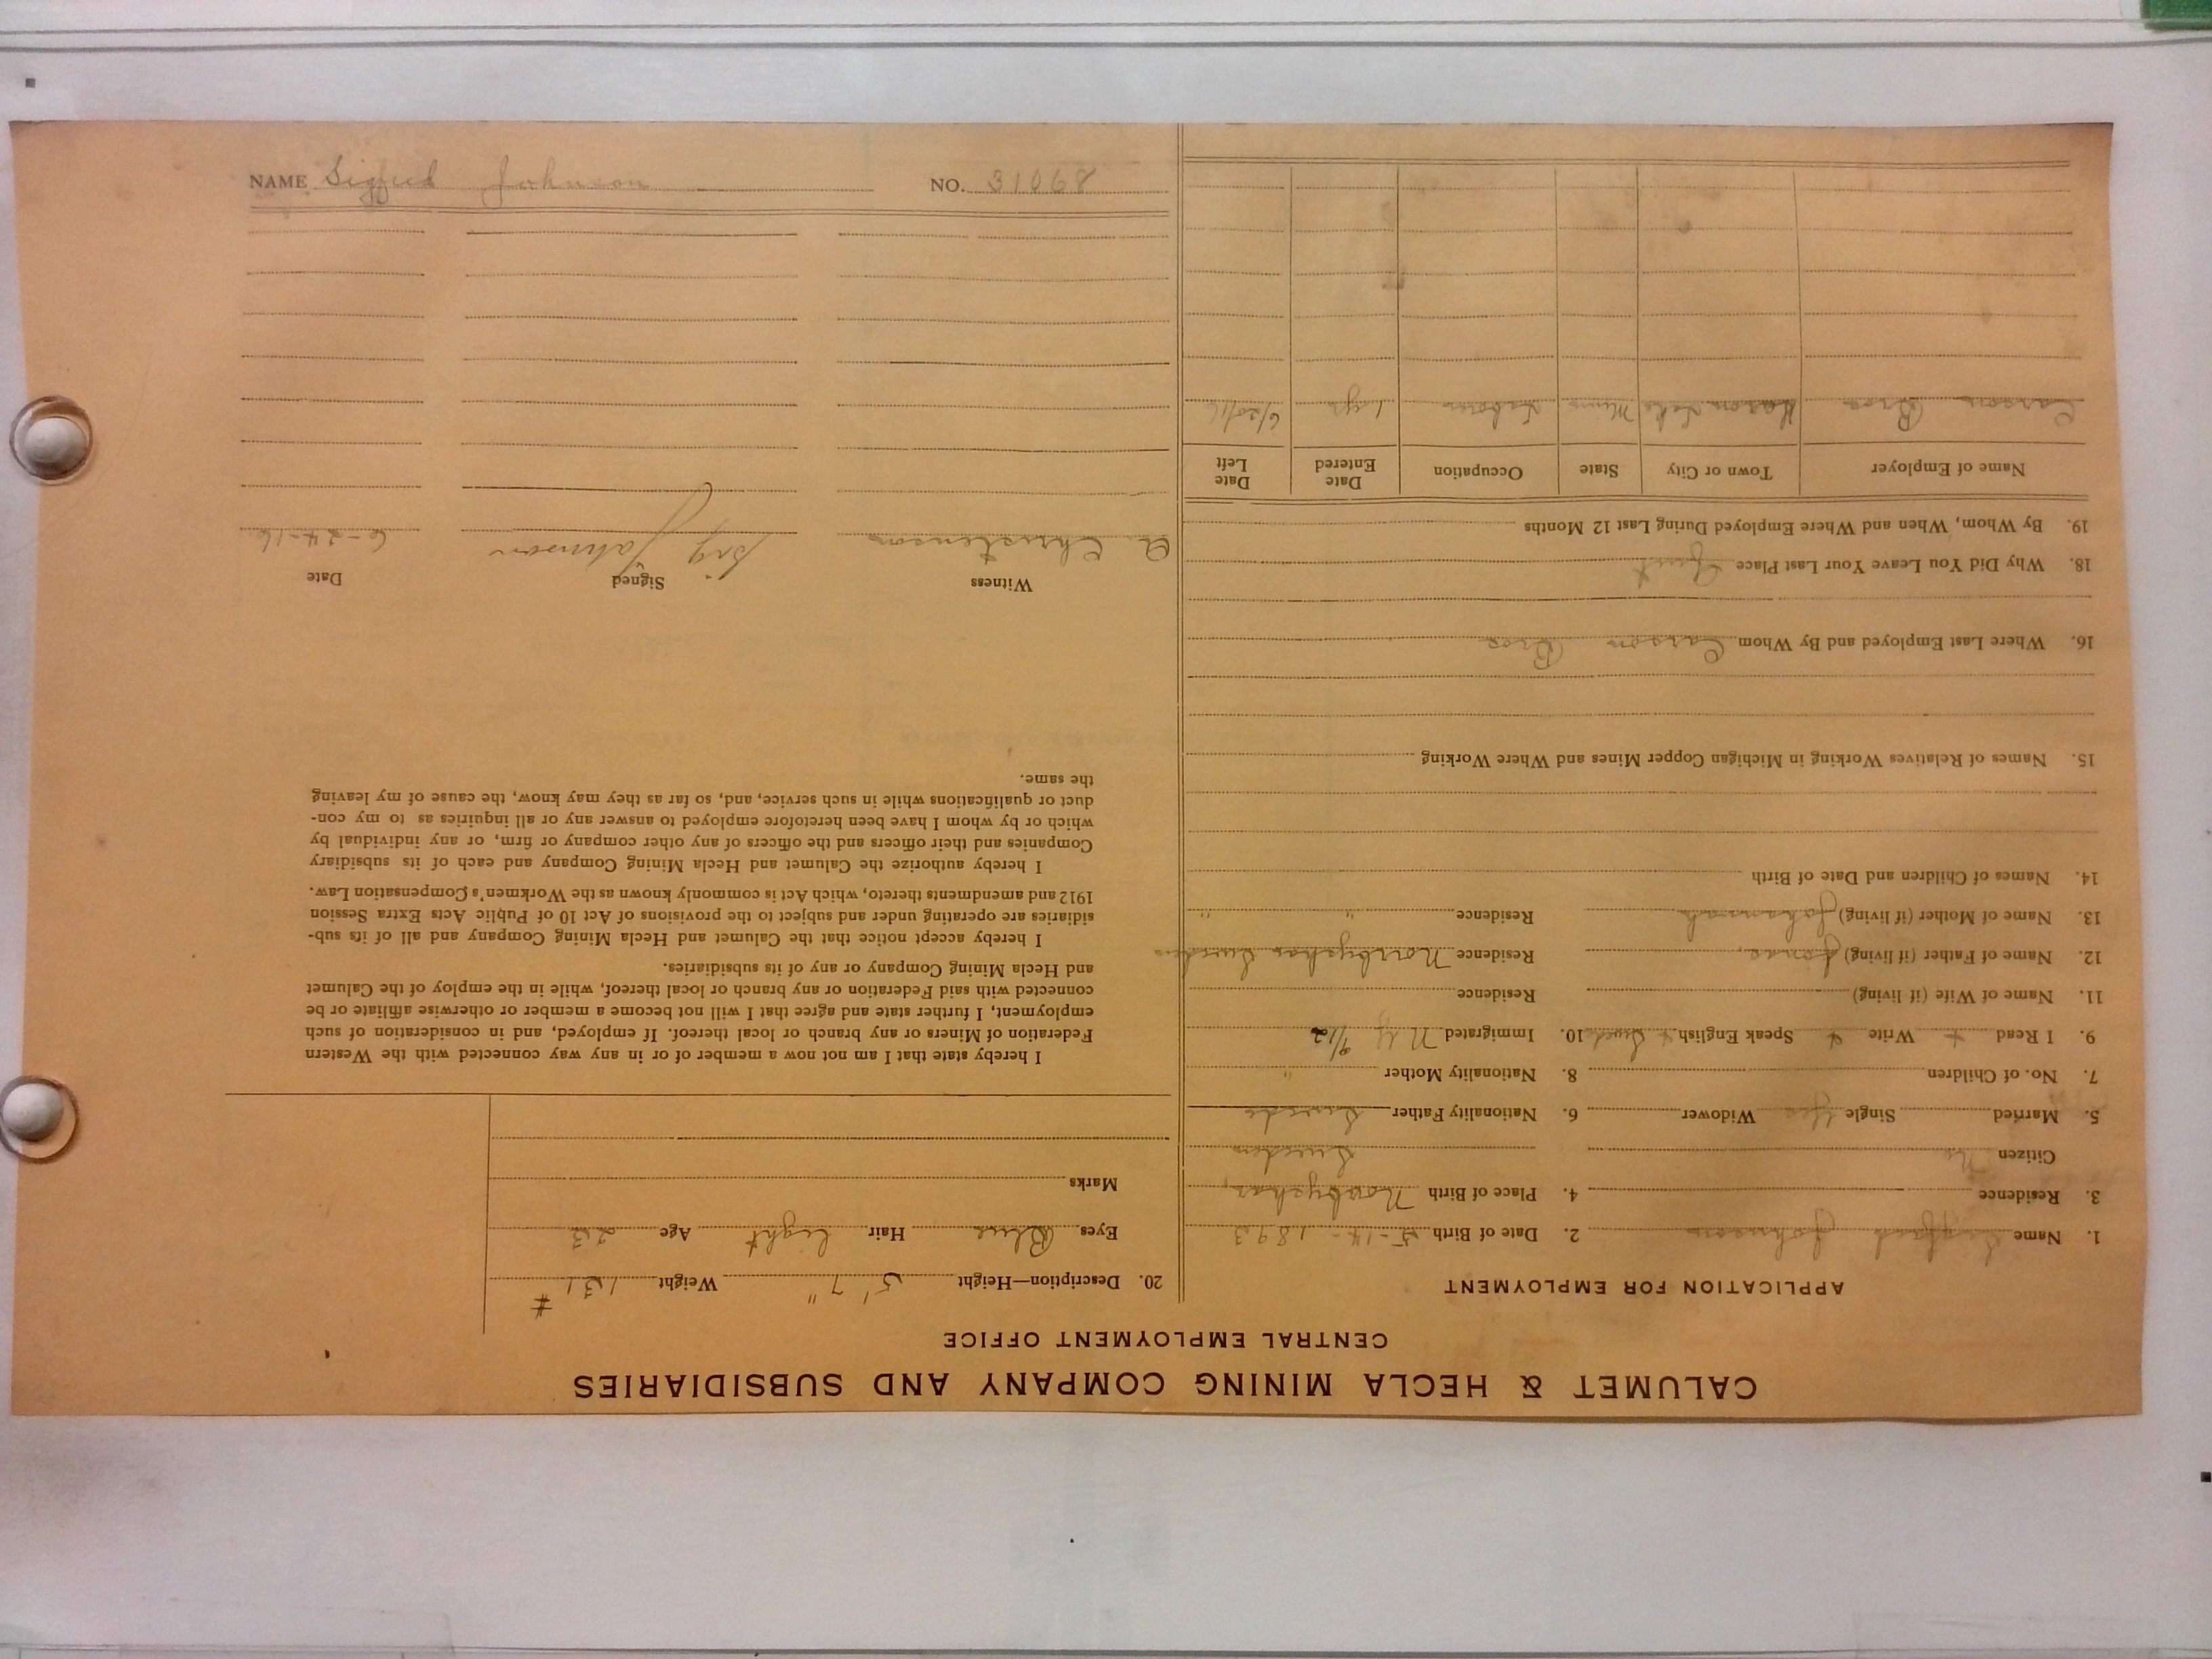 CALUMET & HECLA MINING COMPANY AND SUBSIDIARIES
CENTRAL EMPLOYMENT OFFICE
APPLICATION FOR EMPLOYMENT
1. Name Sigfred Johnson 2. Date of Birth 5-14-1893
3. Residence 4. Place of Birth
Citizen No Sweden
5. Married Single Yes Widower 6. Nationality Father Swede
7. No. of Children 8. Nationality Mother "
9. I Read + Write + Speak English + Swede 10. Immigrated N.Y. 9/12
11. Name of Wife (if living) Residence
12. Name of Father (if living) Jonas Residence Sweden
13. Name of Mother (if living) Johannah Residence " "
14. Names of Children and Date of Birth
15. Names of Relatives Working in Michigan Copper Mines and Where Working
16. Where Last Employed and By Whom Carson Bros
18. Why Did You Leave Your Last Place Quit
19. By Whom, When and Where Employed During Last 12 Months
Name of Employer Town or City State Occupation Date Entered Date Left
Carson Bros Lake Minn Laborer 1 yr 6/20/16
20. Description—Height 5' 7" Weight 131 #
Eyes Blue Hair light Age 23
Marks
I hereby state that I am not now a member of or in any way connected with the Western
Federation of Miners or any branch or local thereof. If employed, and in consideration of such
employment, I further state and agree that I will not become a member or otherwise affiliate or be
connected with said Federation or any branch or local thereof, while in the employ of the Calumet
and Hecla Mining Company or any of its subsidiaries.
I hereby accept notice that the Calumet and Hecla Mining Company and all of its sub-
sidiaries are operating under and subject to the provisions of Act 10 of Public Acts Extra Session
1912 and amendments thereto, which Act is commonly known as the Workmen's Compensation Law.
I hereby authorize the Calumet and Hecla Mining Company and each of its subsidiary
Companies and their officers and the officers of any other company or firm, or any individual by
which or by whom I have been heretofore employed to answer any or all inquiries as to my con-
duct or qualifications while in such service, and, so far as they may know, the cause of my leaving
the same.
Witness Signed Date
A. Christenson Sig Johnson 6-24-16
NAME Sigfred Johnson NO. 31068